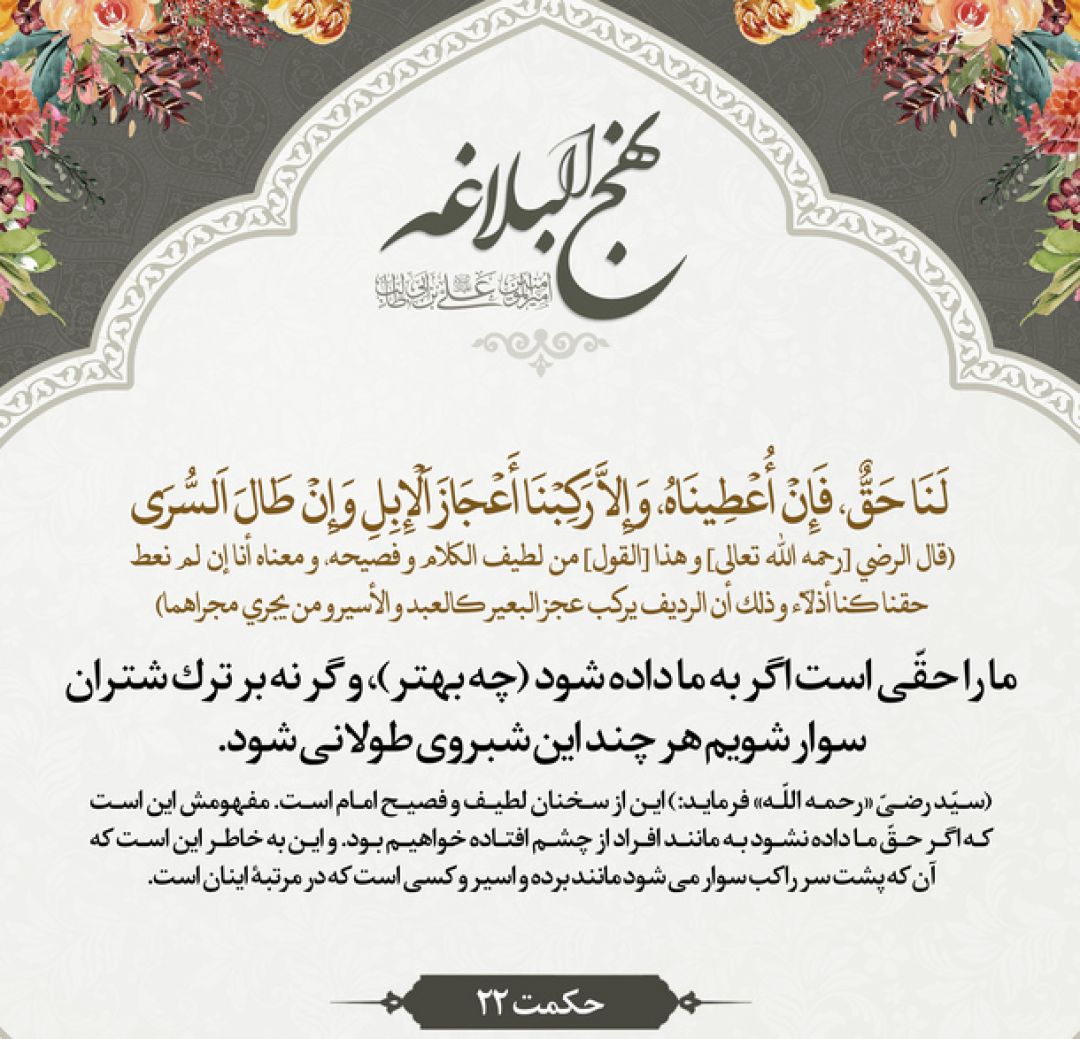 نهج البلاغه
امیرالمؤمنین علی بن ابی طالب
لَنَا حَقٌّ، فَإِنْ أُعْطِينَاهُ، وَإِلاَّ رَكِبْنَا أَعْجَازَ اَلْإِبِلِ وَإِنْ طَالَ اَلسُّرَى
(قال الرضي [رحمه الله تعالی] و هذا [القول] من لطیف الكلام و فصیحه، و معناه أنا إن لم نعط
حقنا كنا أذلاّء و ذلك أن الردیف یرکب عجز البعیر كالعبد و الأسیر و من یجري مجراهما)
ما را حقّی است اگر به ما داده شود (چه بهتر)، و گر نه بر ترك شتران
سوار شویم هر چند این شبروی طولانی شود.
(سیّد رضیّ «رحمه اللّه» فرماید:) این از سخنان لطیف و فصیح امام است. مفهومش این است
که اگر حقّ ما داده نشود به مانند افراد از چشم افتاده خواهیم بود. و این به خاطر این است که
آن که پشت سر راکب سوار می شود مانند برده و اسیر و کسی است که در مرتبۀ اینان است.
حکمت ۲۲